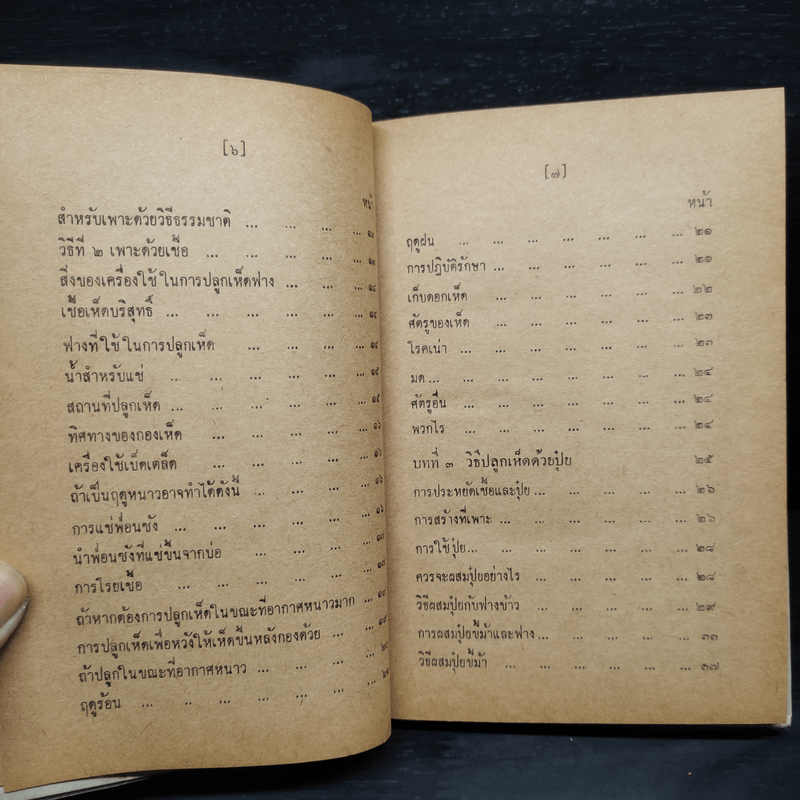 [๖]
หน้า
สำหรับเพาะด้วยวิธีธรรมชาติ ... ... ... ...
วิธีที่ ๒ เพาะด้วยเชื้อ ... ... ... ... ...
สิ่งของเครื่องใช้ในการปลูกเห็ดฟาง ... ... ... ๑๔
เชื้อเห็ดบริสุทธิ์ ... ... ... ... ... ๑๔
ฟางที่ใช้ในการปลูกเห็ด ... ... ... ... ๑๔
น้ำสำหรับแช่ ... ... ... ... ... ๑๕
สถานที่ปลูกเห็ด ... ... ... ... ... ๑๕
ทิศทางของกองเห็ด ... ... ... ... ๑๖
เครื่องใช้เบ็ดเตล็ด ... ... ... ... ๑๖
ถ้าเป็นฤดูหนาวอาจทำได้ดังนี้ ... ... ... ๑๖
การแช่ฟ่อนซัง ... ... ... ... ... ๑๖
นำฟ่อนซังที่แช่ขึ้นจากบ่อ ... ... ... ... ๑๗
การโรยเชื้อ ... ... ... ... ... ๑๗
ถ้าหากต้องการปลูกเห็ดในขณะที่อากาศหนาวมาก ...
การปลูกเห็ดเพื่อหวังให้เห็ดขึ้นหลังกองด้วย ... ...
ถ้าปลูกในขณะที่อากาศหนาว ... ... ... ...
ฤดูร้อน ... ... ... ... ... ...
[๗]
หน้า
ฤดูฝน ... ... ... ... ... ... ๒๑
การปฏิบัติรักษา ... ... ... ... ... ๒๑
เก็บดอกเห็ด ... ... ... ... ... ๒๒
ศัตรูของเห็ด ... ... ... ... ... ๒๓
โรคเน่า ... ... ... ... ... ... ๒๓
มด ... ... ... ... ... ... ๒๔
ศัตรูอื่น ... ... ... ... ... ... ๒๔
พวกไร ... ... ... ... ... ... ๒๔
บทที่ ๓ วิธีปลูกเห็ดด้วยปุ๋ย ๒๕
การประหยัดเชื้อและปุ๋ย ... ... ... ... ... ๒๖
การสร้างที่เพาะ ... ... ... ... ... ๒๖
การใช้ปุ๋ย ... ... ... ... ... ... ๒๘
ควรจะผสมปุ๋ยอย่างไร ... ... ... ... ๒๘
วิธีผสมปุ๋ยกับฟางข้าว ... ... ... ... ๒๙
การผสมปุ๋ยขี้ม้าและฟาง ... ... ... ... ๓๓
วิธีผสมปุ๋ยขี้ม้า ... ... ... ... ... ๓๗